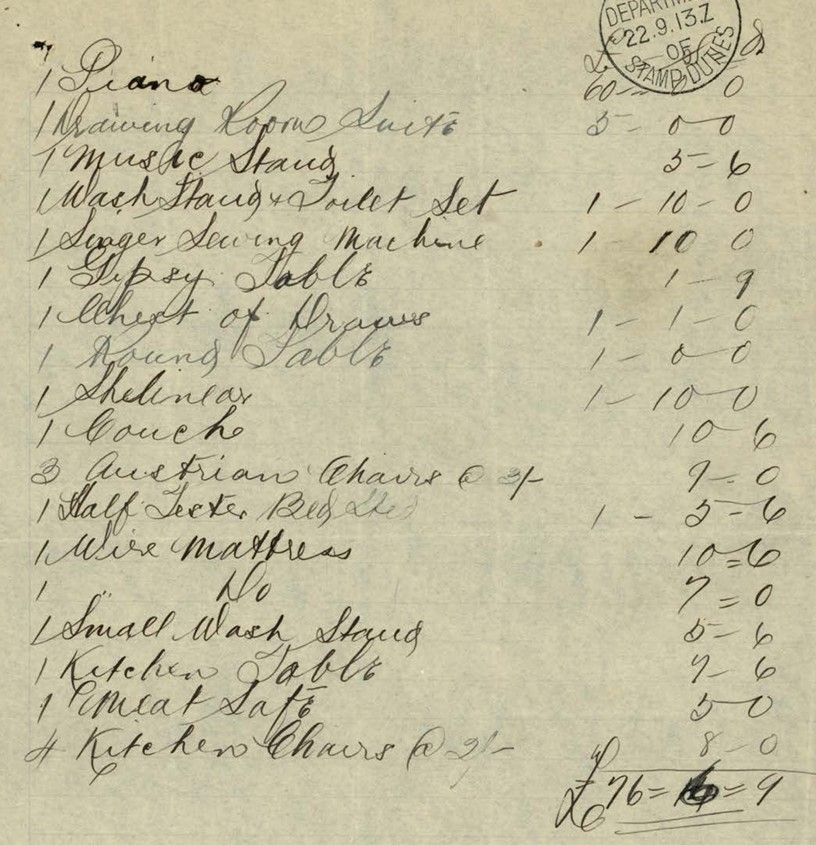 DEPARTMENT
22.9.13.Z
OF
STAMP DUTIES
£ d
1 Piano 60 - 0 0
1 Drawing Room Suite 5 - 0 - 0
1 Music Stand 5 - 6
1 Wash Stand & Toilet Set 1 - 10 - 0
1 Singer Sewing Machine 1 - 10 0
1 Gipsy Table 1 - 9
1 Chest of Draws 1 - 1 - 0
1 Round Table 1 - 0 - 0
1 1 - 10 - 0
1 Couch 10 - 6
3 Austrian Chairs @ 3/- 9 - 0
1 Half Tester Bed Sted 1 - 5 - 6
1 Wire Mattress 10 = 6
1 " Do 7 = 0
1 Small Wash Stand 5 - 6
1 Kitchen Table 7 - 6
1 Meat Safe 5 0
4 Kitchen Chairs @ 2/- 8 - 0
£76 = 6 = 9